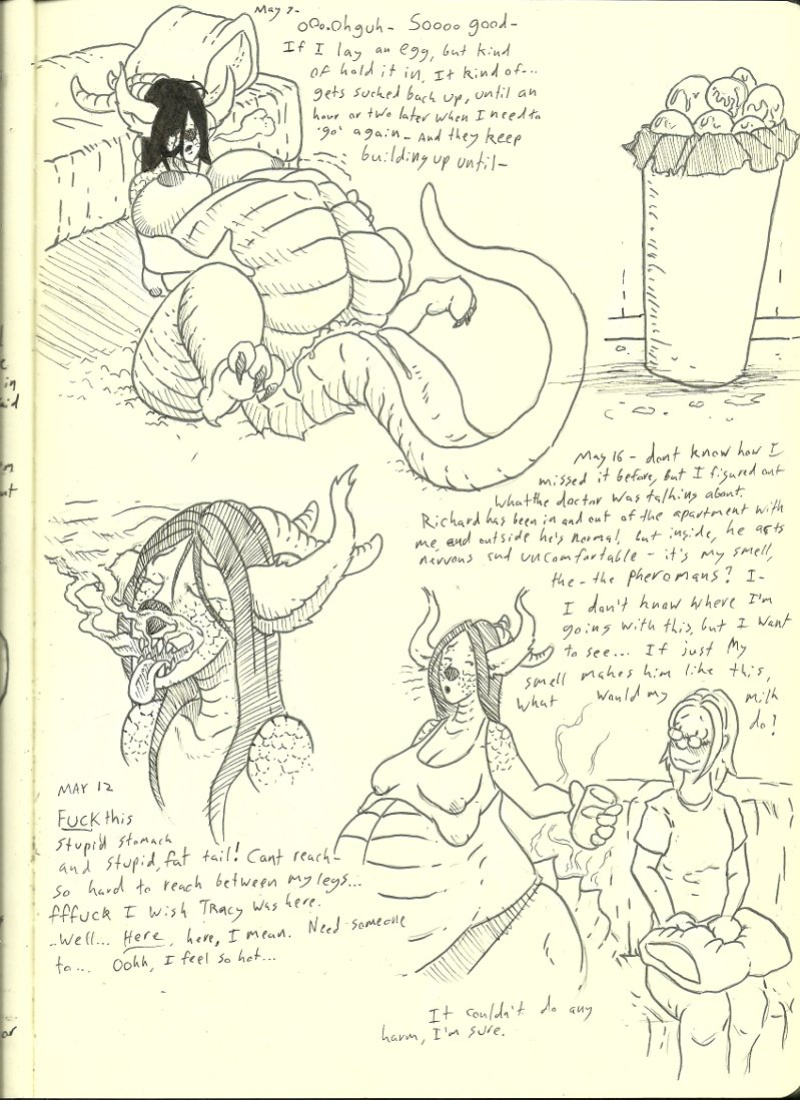 May 7-
oOo.Ohguh- Soooo good-
If I lay an egg, but kind
of hold it in, It kind of...
gets sucked back up, until an
hour or two later when I need to
'go' again- And they keep
building up until-
May 16 - dont know how I
missed it before, but I figured out
what the doctor was talking about.
Richard has been in and out of the apartment with
me, and outside he's normal, but inside, he acts
nervous and uncomfortable - it's my smell,
the - the pheromans? I-
I don't know where I'm
going with this, but I want
to see... If just My
smell makes him like this,
what would my milk
do?
MAY 12
FUCK this
stupid stomach
and stupid, fat tail! Cant reach-
so hard to reach between my legs...
fffuck I wish Tracy was here.
..Well... Here, here, I mean. Need someone
to... Oohh, I feel so hot...
It couldn't do any
harm, I'm sure.
in
ut
or